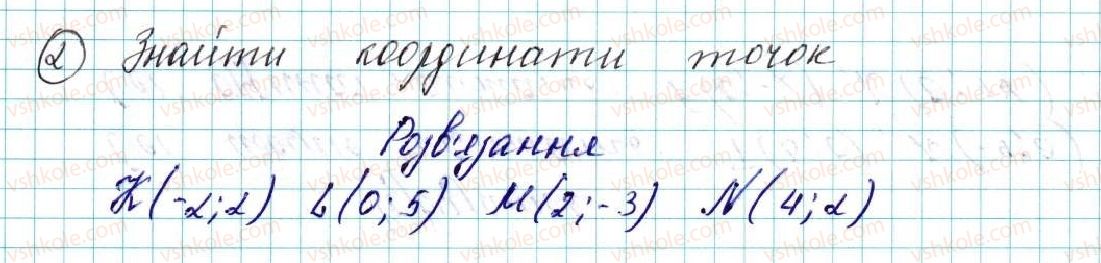 2 Знайти координати точок
Розв'язання
K(-2;2) L(0;5) M(2;-3) N(4;2)